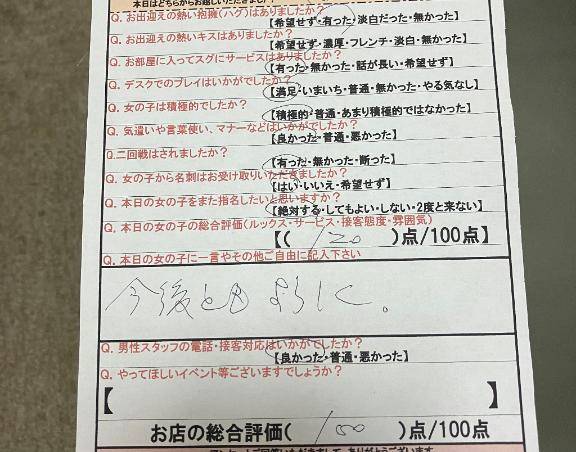 Q. お出迎えの熱い抱擁(ハグ)はありましたか?
【希望せず・有った・淡白だった・無かった】
Q. お出迎えの熱いキスはありましたか?
【希望せず・濃厚・フレンチ・淡白・無かった】
Q. お部屋に入ってスグにサービスはありましたか?
【有った・無かった・話が長い・希望せず】
Q. デスクでのプレイはいかがでしたか?
【満足・いまいち・普通・無かった・やる気なし】
Q. 女の子は積極的でしたか?
【積極的・普通・あまり積極的ではなかった】
Q. 気遣いや言葉使い、マナーなどはいかがでしたか?
【良かった・普通・悪かった】
Q.二回戦はされましたか?
【有った・無かった・断った】
Q. 女の子から名刺はお受け取りいただきましたか?
【はい・いいえ・希望せず】
Q. 本日の女の子をまた指名したいと思いますか?
【絶対する・してもよい・しない・2度と来ない】
Q. 本日の女の子の総合評価(ルックス・サービス・接客態度・雰囲気)
【( 120 )点/100点】
Q. 本日の女の子に一言やその他ご自由に記入下さい
今後ともよろしく。
Q. 男性スタッフの電話・接客対応はいかがでしたか?
【良かった・普通・悪かった】
Q. やってほしいイベント等ございますでしょうか?
【 】
お店の総合評価( 100 )点/100点